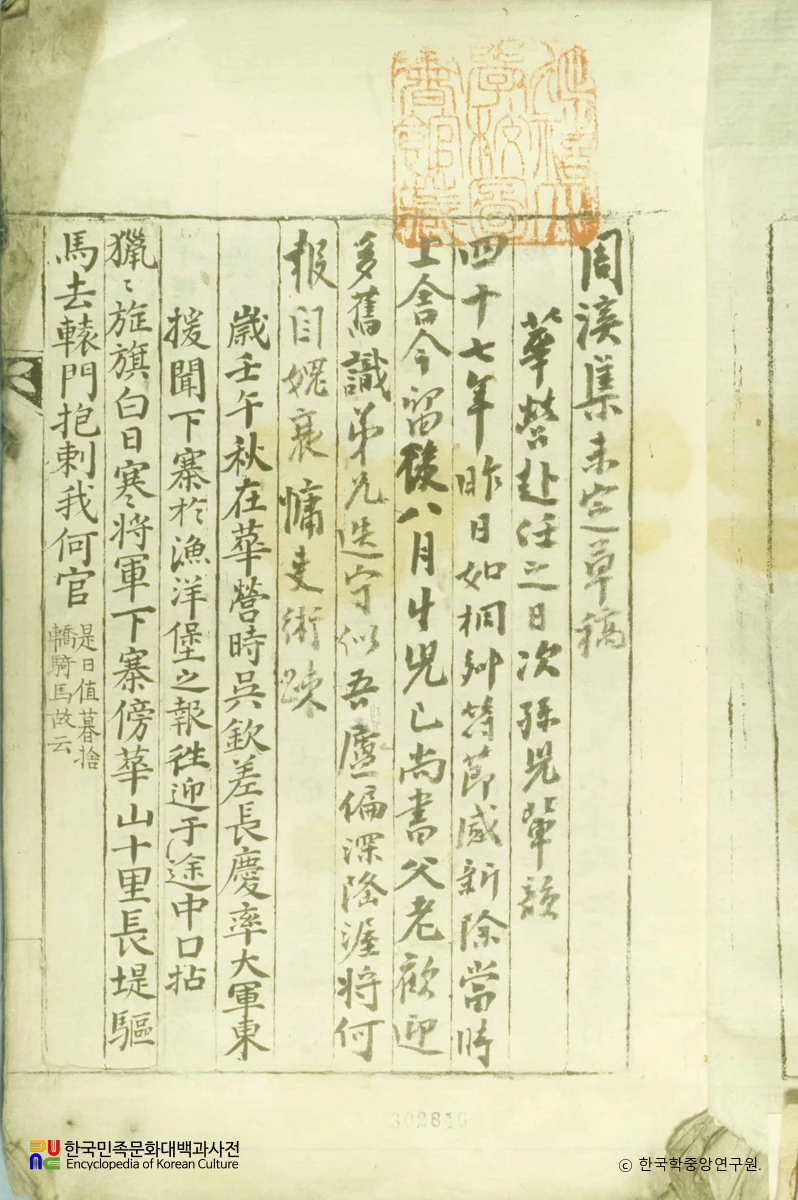 延禧大
學校圖
書館藏
周溪集未定草稿
華營赴任之日次孫兒輩韻
四十七年昨日如桐鄉符節感新除當時
上舍今留後八月生兒已尚書父老歡迎
多舊識弟兄迭守似吾廬偏深隆渥將何
報自愧衰慵吏術疎
歲壬午秋在華營時吳欽差長慶率大軍東
援聞下寨於漁洋堡之報往迎于途中口拈
獵〻旌旗白日寒將軍下寨傍華山十里長堤驅
馬去轅門抱刺我何官
是日值暮捨
轎騎馬故云
한국민족문화대백과사전
Encyclopedia of Korean Culture
ⓒ 한국학중앙연구원.